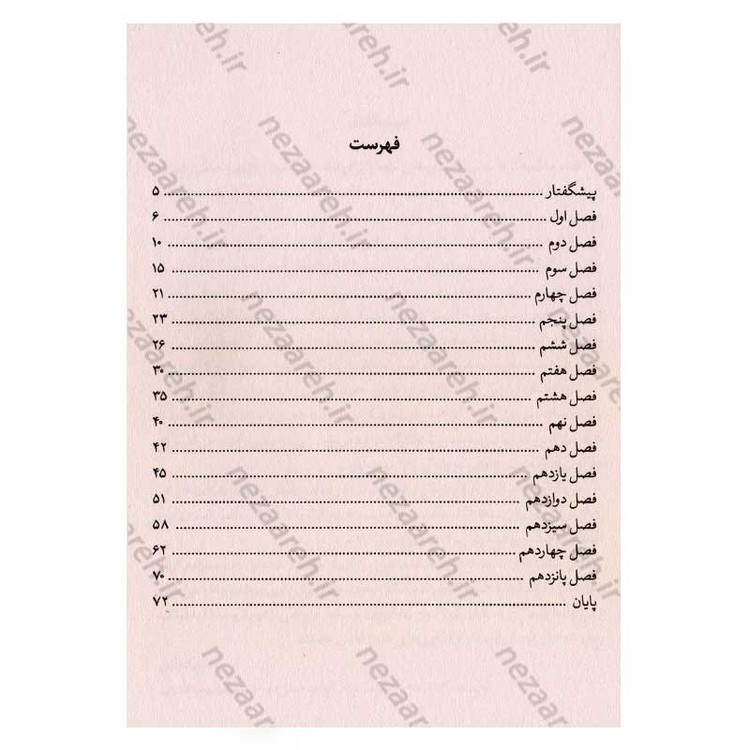 فهرست
پیشگفتار ........ ۵
فصل اول ........ ۶
فصل دوم ........ ۱۰
فصل سوم ........ ۱۵
فصل چهارم ........ ۲۱
فصل پنجم ........ ۲۳
فصل ششم ........ ۲۶
فصل هفتم ........ ۳۰
فصل هشتم ........ ۳۵
فصل نهم ........ ۴۰
فصل دهم ........ ۴۲
فصل یازدهم ........ ۴۵
فصل دوازدهم ........ ۵۱
فصل سیزدهم ........ ۵۸
فصل چهاردهم ........ ۶۲
فصل پانزدهم ........ ۷۰
پایان ........ ۷۲
nezaareh.ir